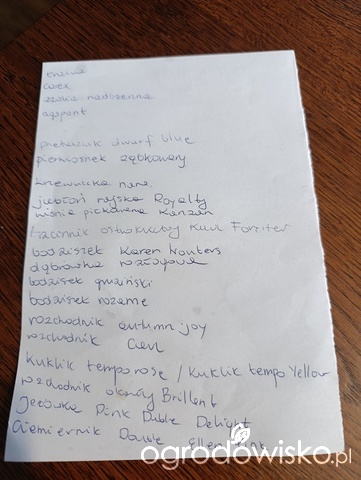 carex
szałwia nadbrzeżna
agapant
przetacznik dwarf blue
pierwiosnek ząbkowany
krzewuszka nana
jabłoń rajska Royalty
wiśnia piłkowana Kanzan
trzcinnik ostrokwiatowy Karl Forster
bodziszek Karen Wouters
dąbrówka rozłogowa
bodziszek gruziński
bodziszek rozanne
rozchodnik autumn joy
rozchodnik
kuklik tempo rose / kuklik tempo Yellow
rozchodnik okazały Brillent
Jeżówka Pink Duble Delight
Ciemiernik Double Ellen Pink
ogrodowisko.pl